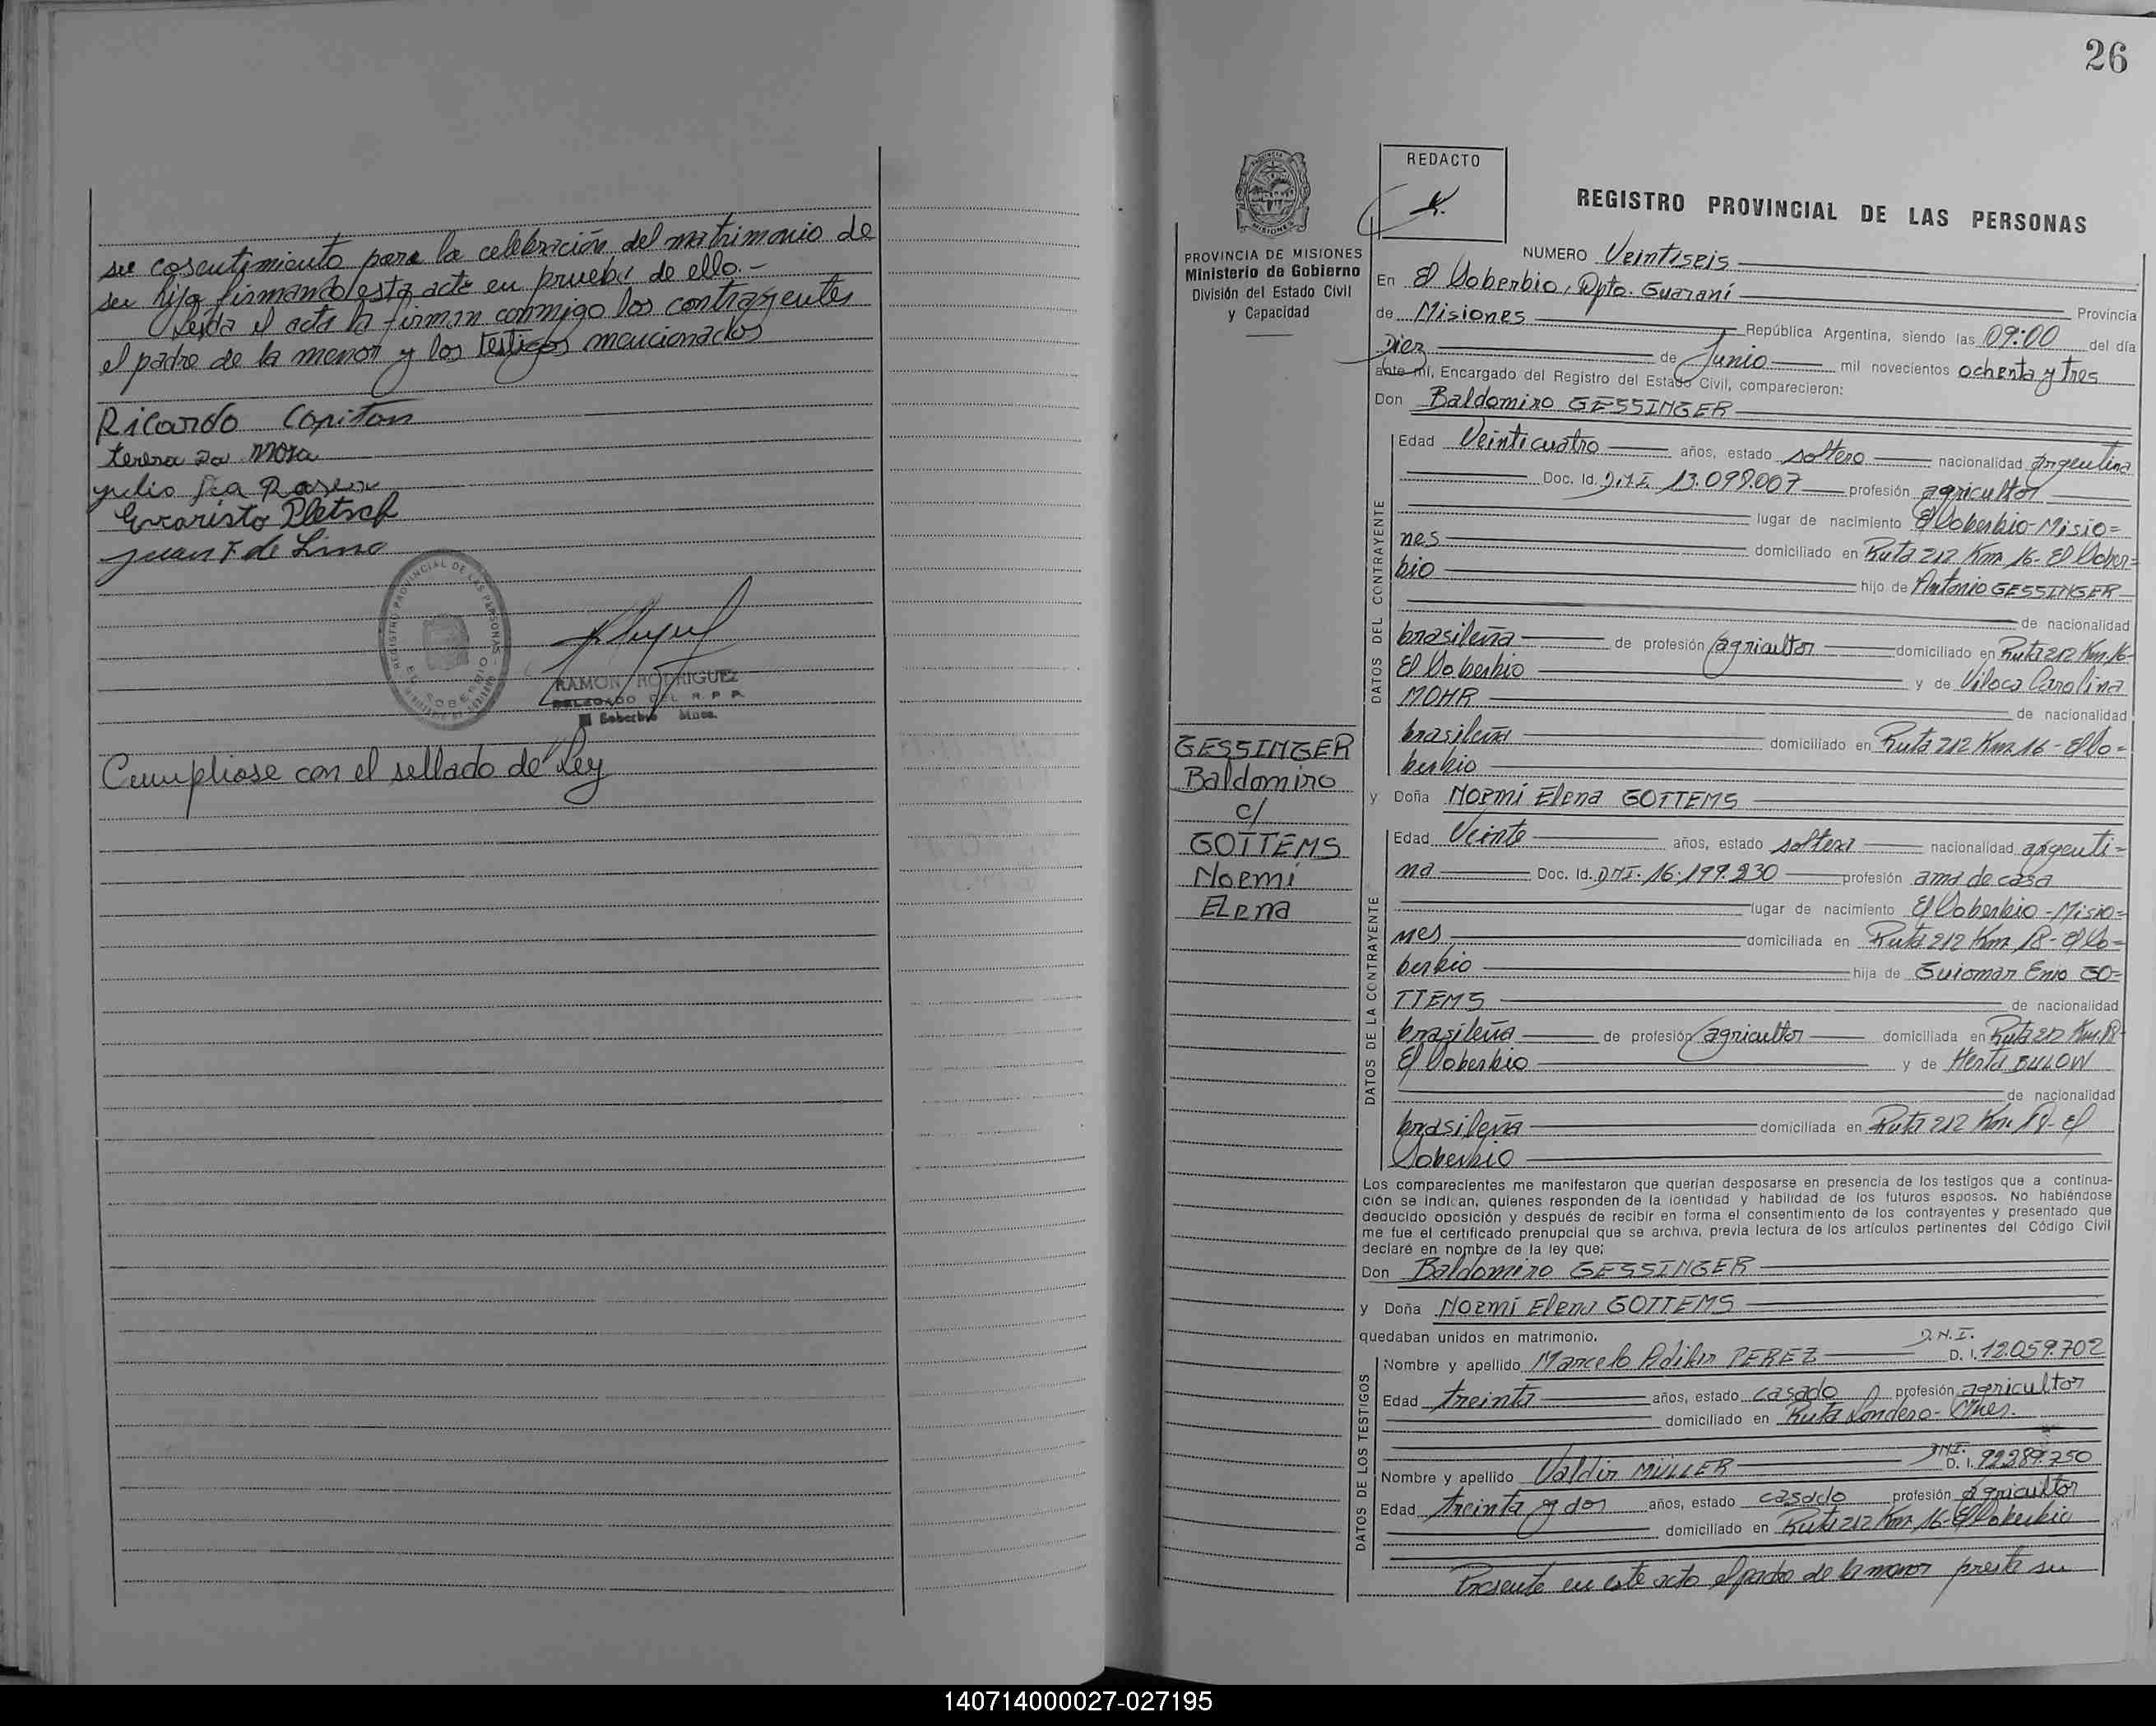 su cosentimiento para la celebración del matrimonio de
su hija firmando esta acta en prueba de ello.-
Leida el acta la firman conmigo los contrayentes
el padre de la menor y los testigos mencionados
Ricardo Copiton
teresa da mora
julio da Rosa
Evaristo Pletsch
juan F. de Lima
REGISTRO PROVINCIAL DE LAS PERSONAS
EL SOBERBIO
RAMON RODRIGUEZ
DELEGADO DEL R. P. P.
El Soberbio Mnes.
Cumpliose con el sellado de Ley
26
PROVINCIA DE MISIONES
Ministerio de Gobierno
División del Estado Civil
y Capacidad
GESSINGER
Baldomiro
c/
GOTTEMS
Noemi
Elena
REDACTO
REGISTRO PROVINCIAL DE LAS PERSONAS
NUMERO Veintiseis
En El Soberbio, Dpto. Guaraní
Provincia
de Misiones República Argentina, siendo las 09:00 del día
Diez de Junio mil novecientos ochenta y tres
ante mí, Encargado del Registro del Estado Civil, comparecieron:
Don Baldomiro GESSINGER
DATOS DEL CONTRAYENTE
Edad Veinticuatro años, estado soltero nacionalidad argentina
Doc. Id. D.N.I. 13.098.007 profesión agricultor
lugar de nacimiento El Soberbio-Misio=
nes domiciliado en Ruta 212 Km 16-El Sober=
bio hijo de Antonio GESSINGER
de nacionalidad
brasileña de profesión agricultor domiciliado en Ruta 212 Km 16-
El Soberbio y de Viloca Carolina
MOHR de nacionalidad
brasileña domiciliado en Ruta 212 Km 16-El So=
berbio
y Doña Noemí Elena GOTTEMS
DATOS DE LA CONTRAYENTE
Edad Veinte años, estado soltera nacionalidad argenti=
na Doc. Id. DNI. 16.199.230 profesión ama de casa
lugar de nacimiento El Soberbio-Misio=
nes domiciliada en Ruta 212 Km 18-El So=
berbio hija de Guiomar Enio GO=
TTEMS de nacionalidad
brasileña de profesión agricultor domiciliada en Ruta 212 Km. 18-
El Soberbio y de Herta BULOW
de nacionalidad
brasileña domiciliada en Ruta 212 Km. 18-El
Soberbio
Los comparecientes me manifestaron que querían desposarse en presencia de los testigos que a continua-
ción se indican, quienes responden de la identidad y habilidad de los futuros esposos. No habiéndose
deducido oposición y después de recibir en forma el consentimiento de los contrayentes y presentado que
me fue el certificado prenupcial que se archiva, previa lectura de los artículos pertinentes del Código Civil
declaré en nombre de la ley que;
Don Baldomiro GESSINGER
y Doña Noemí Elena GOTTEMS
quedaban unidos en matrimonio.
DATOS DE LOS TESTIGOS
D.N.I.
Nombre y apellido Marcelo PEREZ D. I. 12.059.702
Edad treinta años, estado casado profesión agricultor
domiciliado en Ruta Londero-Mnes.
DNI.
Nombre y apellido Valdir MULLER D. I. 92.289.250
Edad treinta y dos años, estado casado profesión agricultor
domiciliado en Ruta 212 Km 16-El Soberbio
Presente en este acto el padre de la menor presta su
140714000027-027195